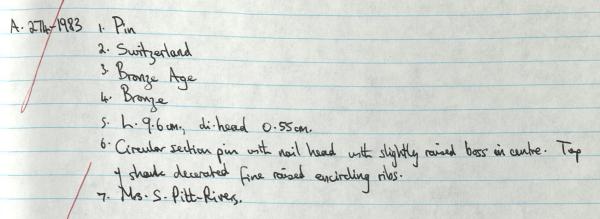 A. 274-1983 1. Pin
2. Switzerland
3. Bronze Age
4. Bronze
5. L. 9.6cm, di. head 0.55cm.
6. Circular section pin with nail head with slightly raised boss in centre. Top
of shank decorated fine raised encircling ribs.
7. Mrs. S. Pitt-Rivers.